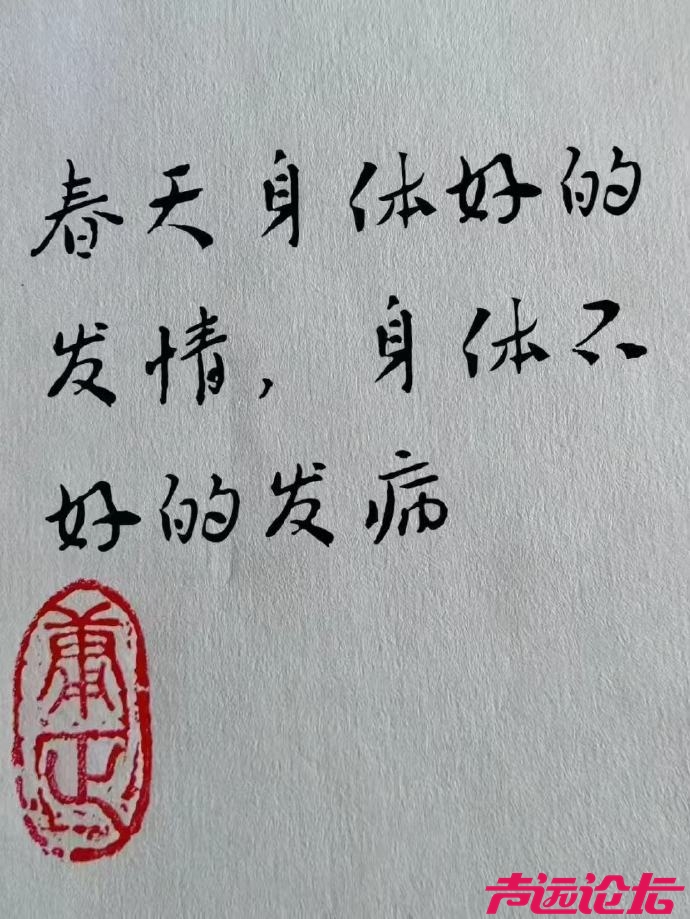 春天身体好的
发情,身体不
好的发病
声远论坛